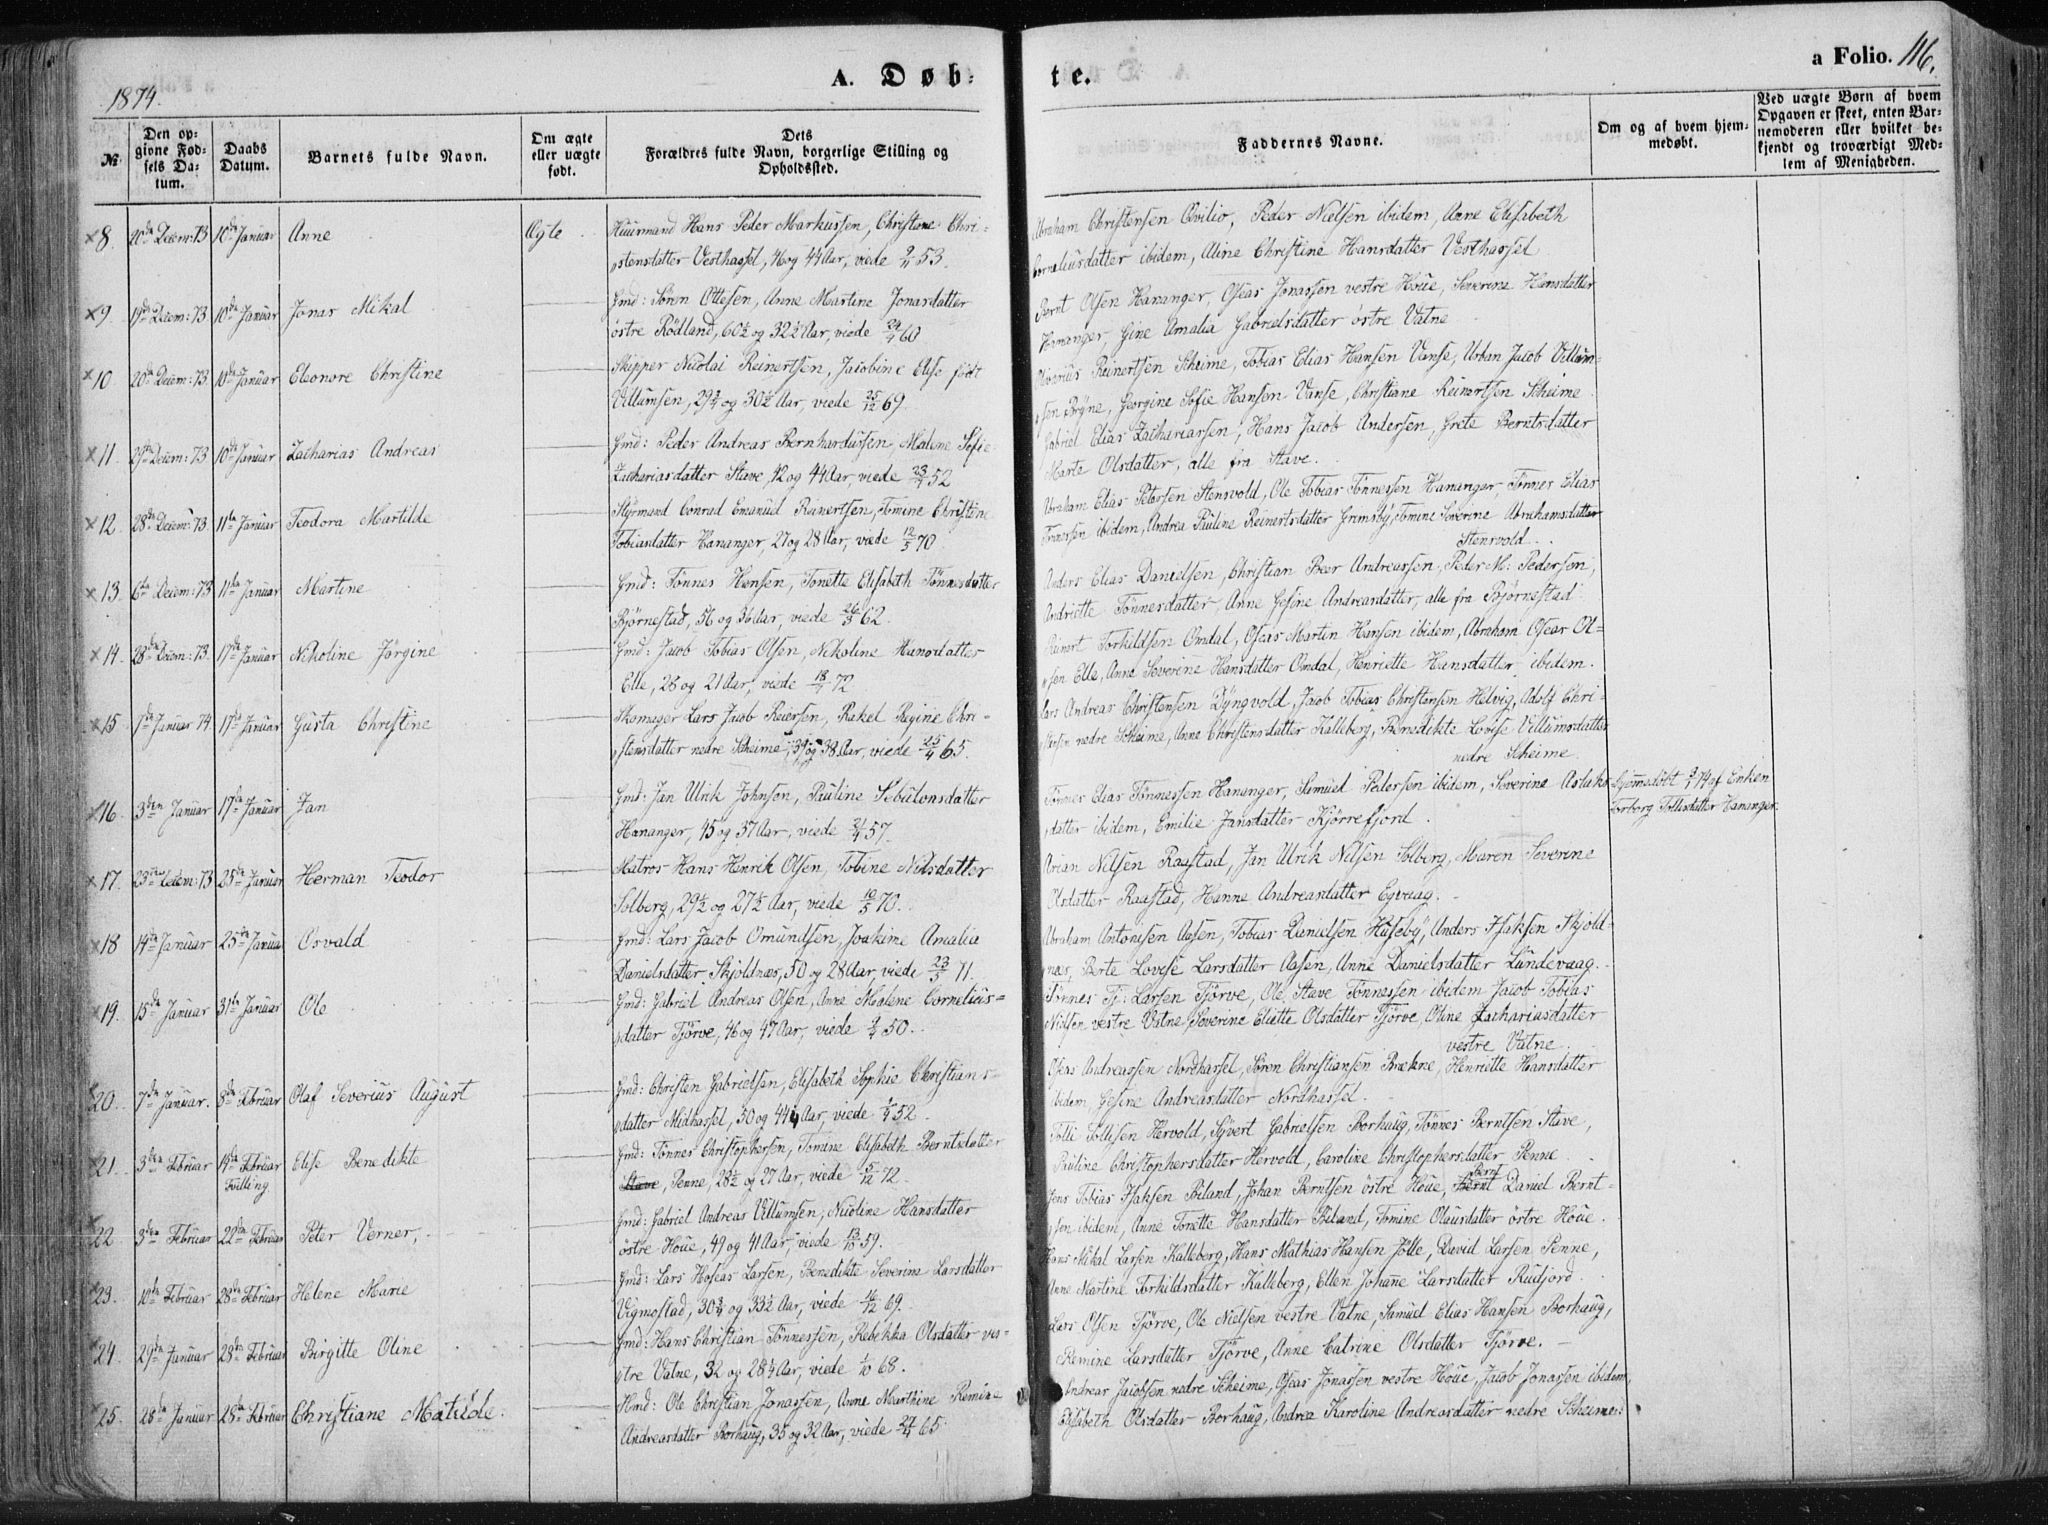 A. Døb-
te.
a Folio. 116.
1874.
№
Den opgivne Fødsels Datum.
Daabs Datum.
Barnets fulde Navn.
Om ægte eller uægte født.
Dets Forældres fulde Navn, borgerlige Stilling og Opholdssted.
Faddernes Navne.
Om og af hvem hjemmedøbt.
Ved uægte Børn af hvem Opgaven er skeet, enten Barnemoderen eller hvilket bekjendt og troværdigt Medlem af Menigheden.
8. 20de Decem: 73 10de Januar Anne Ægte Huusmand Hans Peder Markussen, Christine Chri-
stensdatter Vesthassel, 46 og 44 Aar, viede 53.
Abraham Christensen Qvilio, Peder Nielsen ibidem, Anne Elisabeth
Corneliusdatter ibidem, Aline Christine Hansdatter Vesthassel
9. 19de Decem: 73 10de Januar Jonas Mikal Gmd: Søren Ottesen, Anne Martine Jonasdatter
østre Rödland, 60½ og 32½ Aar, viede 24/4 60
Bernt Olsen Hananger, Oseas Jonassen vestre Höue, Severine Hansdatter
Hananger, Gine Amalia Gabrielsdatter östre Vatne
10. 20de Decem: 73. 10de Januar Eleonore Christine Skipper Nicolai Reinertsen, Jacobine Elise født
Villumsen, 29¾ og 30½ Aar, viede 25/12 69.
Reinertsen Scheime, Tobias Elias Hansen Vanse, Urban Jacob Villum-
sen Brÿne, Georgine Sofie Hansen Vanse, Christiane Reinertsen Scheime.
11. 29de Decem: 73 10de Januar Zacharias Andreas Gmd: Peder Andreas Bernhardussen, Malene Sofie
Zachariasdatter Stave, 42 og 44 Aar, viede 52
Gabriel Elias Zachariassen, Hans Jacob Andersen, Grete Berntsdatter
Marte Olsdatter, alle fra Stave.
12. 28de Decem: 73 11te Januar Teodora Martilde Styrmand Conrad Emanuel Reinertsen, Tomine Christine
Tobiasdatter Hananger, 27 og 28 Aar, viede 12/5 70.
Abraham Elias Petersen Stensvold, Ole Tobias Tönnessen Hananger, Tönnes Elias
Tönnessen ibidem, Andrea Pauline Reinertsdatter Grimsby, Tomine Severine Abrahamsdatter
Stensvold.
13. 6te Decem: 73 11te Januar Martine Gmd: Tönnes Hansen, Tonette Elisabeth Tönnesdatter
Bjørnestad, 56 og 36 Aar, viede 62.
Anders Elias Danielsen, Christian Beer Andreassen, Peder M: Pedersen,
Andriette Tönnesdatter, Anne Gesine Andreasdatter, alle fra Bjørnestad.
14. 28de Decem: 73. 17de Januar Nikoline Jørgine Gmd: Jacob Tobias Olsen, Nikoline Hansdatter
Elle, 28 og 21 Aar, viede 72.
Reinert Torkildsen Omdal, Oseas Martin Hansen ibidem, Abraham Osear Ol-
sen Elle, Anna Severine Hansdatter Omdal, Henriette Hansdatter ibidem.
15 1de Januar 74. 17de Januar Gusta Christine Skomager Lars Jacob Reiersen, Rakel Regine Chri-
stensdatter nedre Scheime, 39 og 38 Aar, viede 25/4 65.
Lars Andreas Christensen Dyngvold, Jacob Tobias Christensen Helvig, Adolf Chri-
stensen nedre Scheime, Anne Christensdatter Kalleberg, Benedikte Lovise Villumsdatter
nedre Scheime.
16. 3den Januar 17de Januar Jan Gmd: Jan Ulrik Johnsen, Pauline Sebulonsdatter
Hananger, 45 og 37 Aar, viede 57.
Tönnes Elias Tönnessen Hananger, Samuel Pedersen ibidem, Severine Aslaks-
datter ibidem, Emilie Jansdatter Kjörrefjord.
Hjemmedøbt 74 af Enken
Torborg Tollisdatter Hananger.
17. 23de Decem: 73 25de Januar Herman Teodor Matros Hans Henrik Olsen, Tobine Nilsdatter
Solberg, 29½ og 27½ Aar, viede 70.
Arian Nilsen Raastad, Jan Ulrik Nilsen Solberg, Maren Severine
Olsdatter Raastad, Hanne Andreasdatter Egvaag.
18 14de Januar 25de Januar Osvald Gmd: Lars Jacob Omundsen, Joakime Amalia
Danielsdatter, Skjoldnæs, 50 og 28 Aar, viede 23/5 71.
Abraham Antonisen Aasen, Tobias Danielsen Huseby, Anders Isaksen Skjold-
næs, Berte Lovise Larsdatter Aasen, Anne Danielsdatter Lundevaag.
19. 15de Januar 31te Januar Ole Gmd: Gabriel Andreas Olsen, Anne Malene Cornelius-
datter Tjörve, 46 og 47 Aar, viede 50.
Tönnes Tj: Larsen Tjörve, Ole Stave Tönnessen ibidem Jacob Tobias
Nielsen vestre Vatne, Severine Eliette Olsdatter Tjörve, Oline Zachariasdatter
vestre Vatne.
20. 7de Januar. 8de Februar Olaf Severius August Gmd: Christen Gabrielsen, Elisabeth Sophie Christians-
datter Midhassel, 50 og 44 Aar, viede 52.
Oseas Andreassen Nordhassel, Sören Christiansen Brekne, Henriette Hansdatter
ibidem, Gesine Andreasdatter Nordhassel.
21. 3den Februar 14de Februar Fvilling. Elise Benedikte Gmd: Tönnes Christophersen, Tomine Elisabeth Berntsdatter
Stave, Penne, 28½ og 27 Aar, viede 5/12 72.
Tolli Tollisen Hervold, Sjvert Gabrielsen Borhaug, Tönnes Berntsen Stave,
Pauline Christophersdatter Hervold, Caroline Christophersdatter Penne.
22. 3den Februar 22de Februar Peter Verner, Gmd: Gabriel Andreas Villumsen, Nicoline Hansdatter
östre Höue, 49 og 41 Aar, viede 13/10 59.
Jens Tobias Isaksen Biland, Johan Berntsen östre Höue, Bernt Daniel Bernt-
sen ibidem, Anne Tonette Hansdatter Biland, Tomine Olausdatter östre Höue.
23. 10de Februar 28de Februar Helene Marie Gmd: Lars Hoseas Larsen, Benedikte Severine Larsdatter
Vigmostad, 30¾ og 33½ Aar, viede 16/12 69.
Hans Mikal Larsen Kalleberg, Hans Mathias Hansen Jölle, David Larsen Penne,
Anne Martine Torkildsdatter Kalleberg, Ellen Johanne Larsdatter Rudjord.
24. 29de Januar 28de Februar Birgitte Oline Gmd: Hans Christian Tönnessen, Rebekka Olsdatter ves-
tre Vatne, 32 og 28½ Aar, viede 1/10 68.
Lars Olsen Tjörve, Ole Nielsen vestre Vatne, Samuel Elias Hansen Borhaug,
Remine Larsdatter Tjörve, Anne Catrine Olsdatter Tjörve.
25. 28de Januar 28de Februar Christiane Matilde. Hmd: Ole Christian Jonassen, Anne Marthine Remine
Andreasdatter Borhaug, 35 og 32 Aar, viede 65
Andreas Jacobsen nedre Scheime, Oseas Jonassen vestre Höue, Jacob Jonassen ibidem,
Elisabeth Olsdatter Borhaug, Andrea Karoline Andreasdatter nedre Scheime.